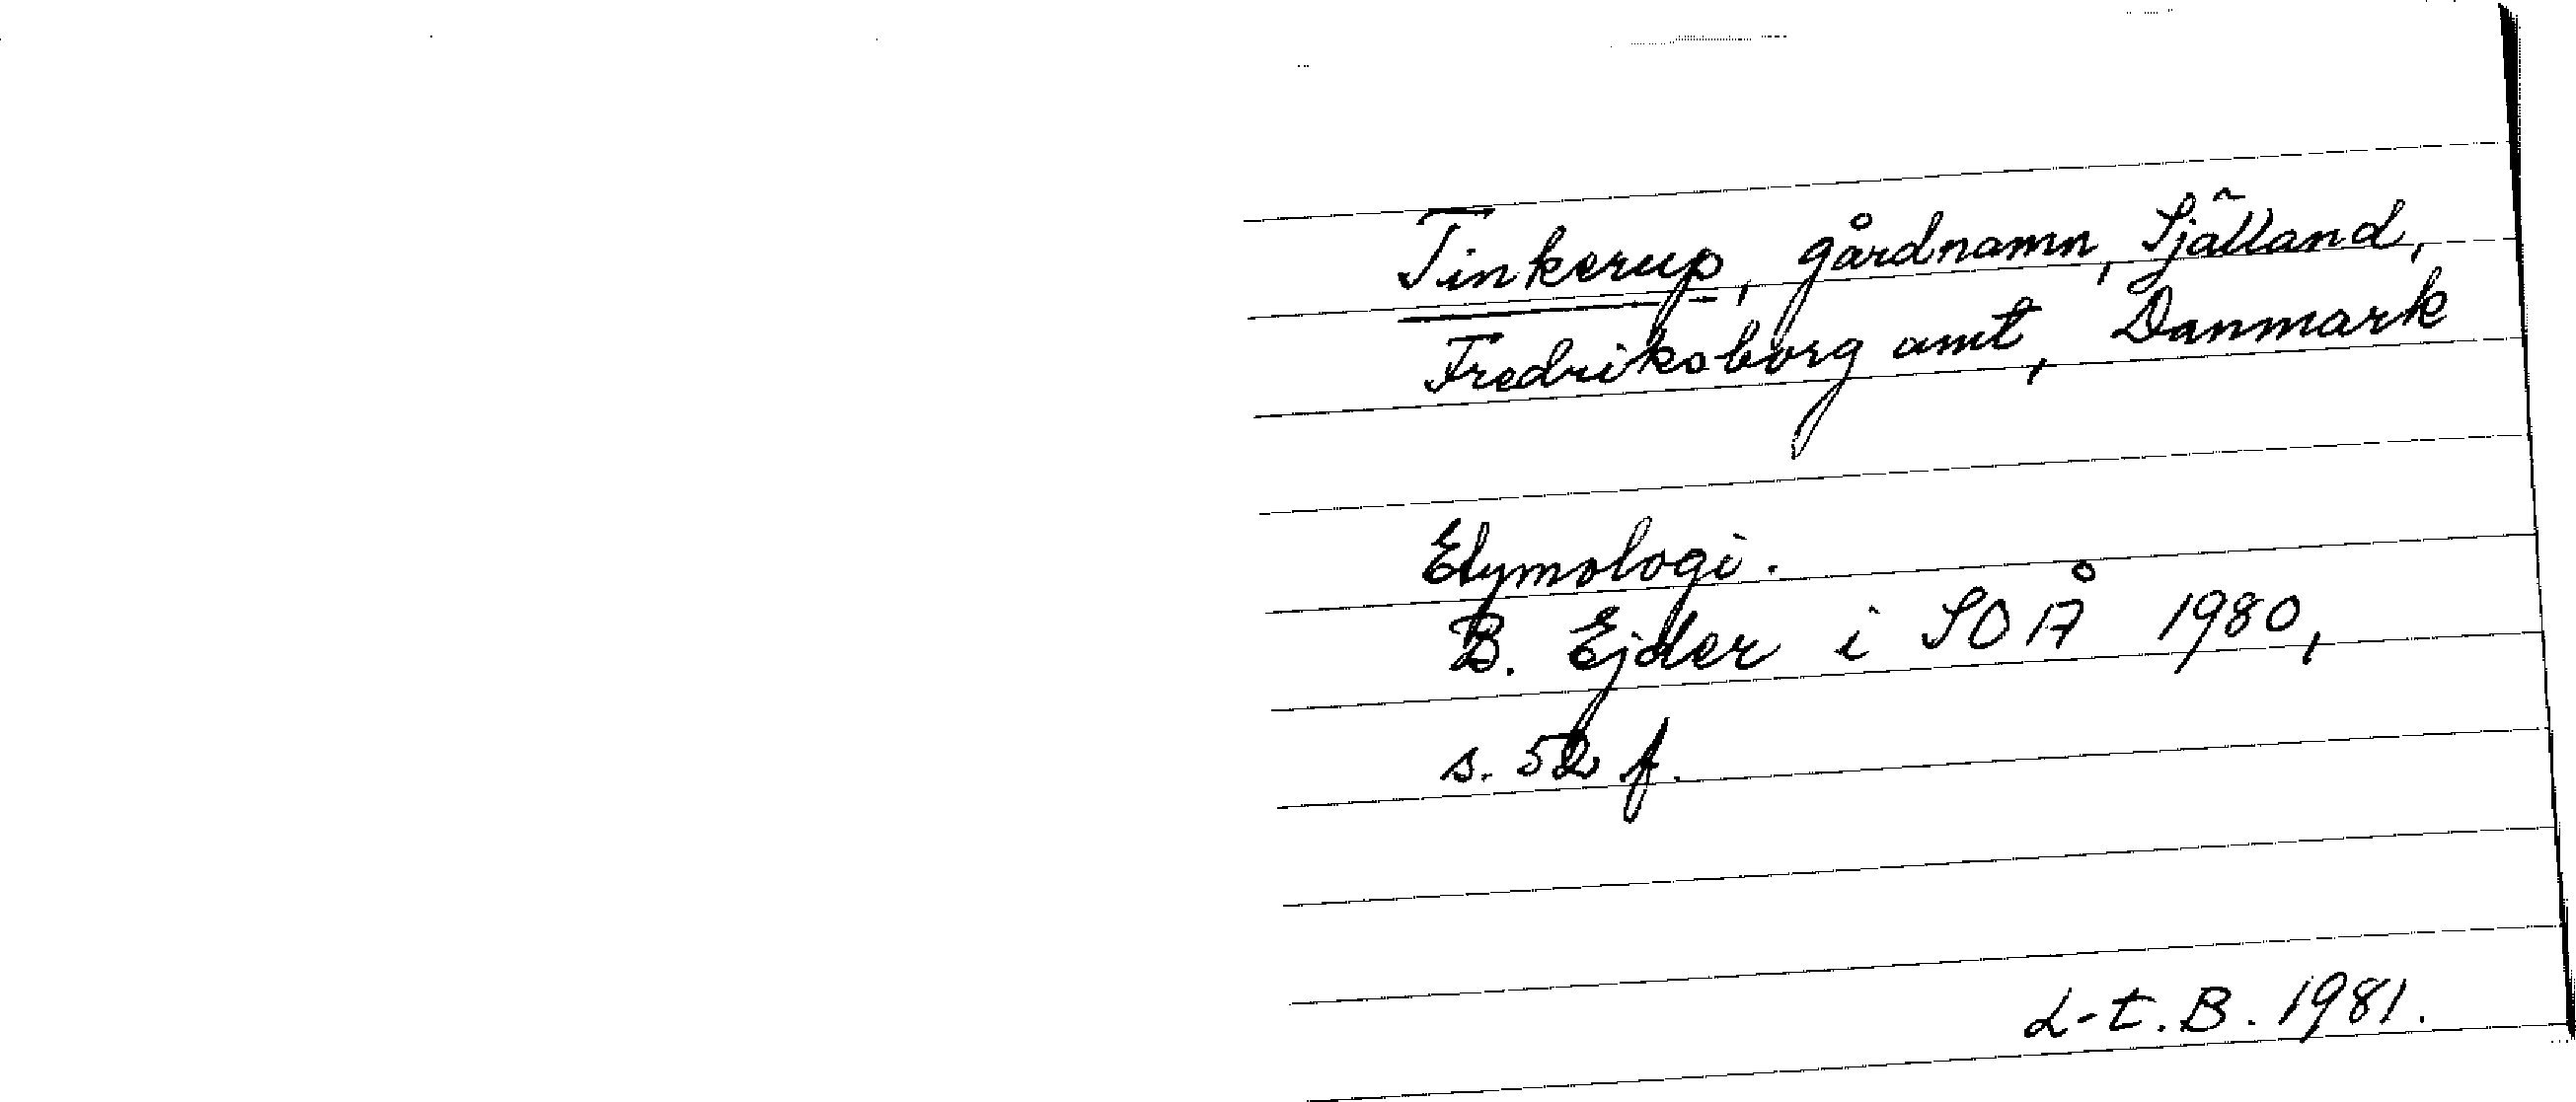 Tinkerup, gårdnamn, Själland,
Fredriksborg amt, Danmark
Etymologi.
B. Ejder i SOÅ 1980,
s. 52 f.
L-t. B. 1981.